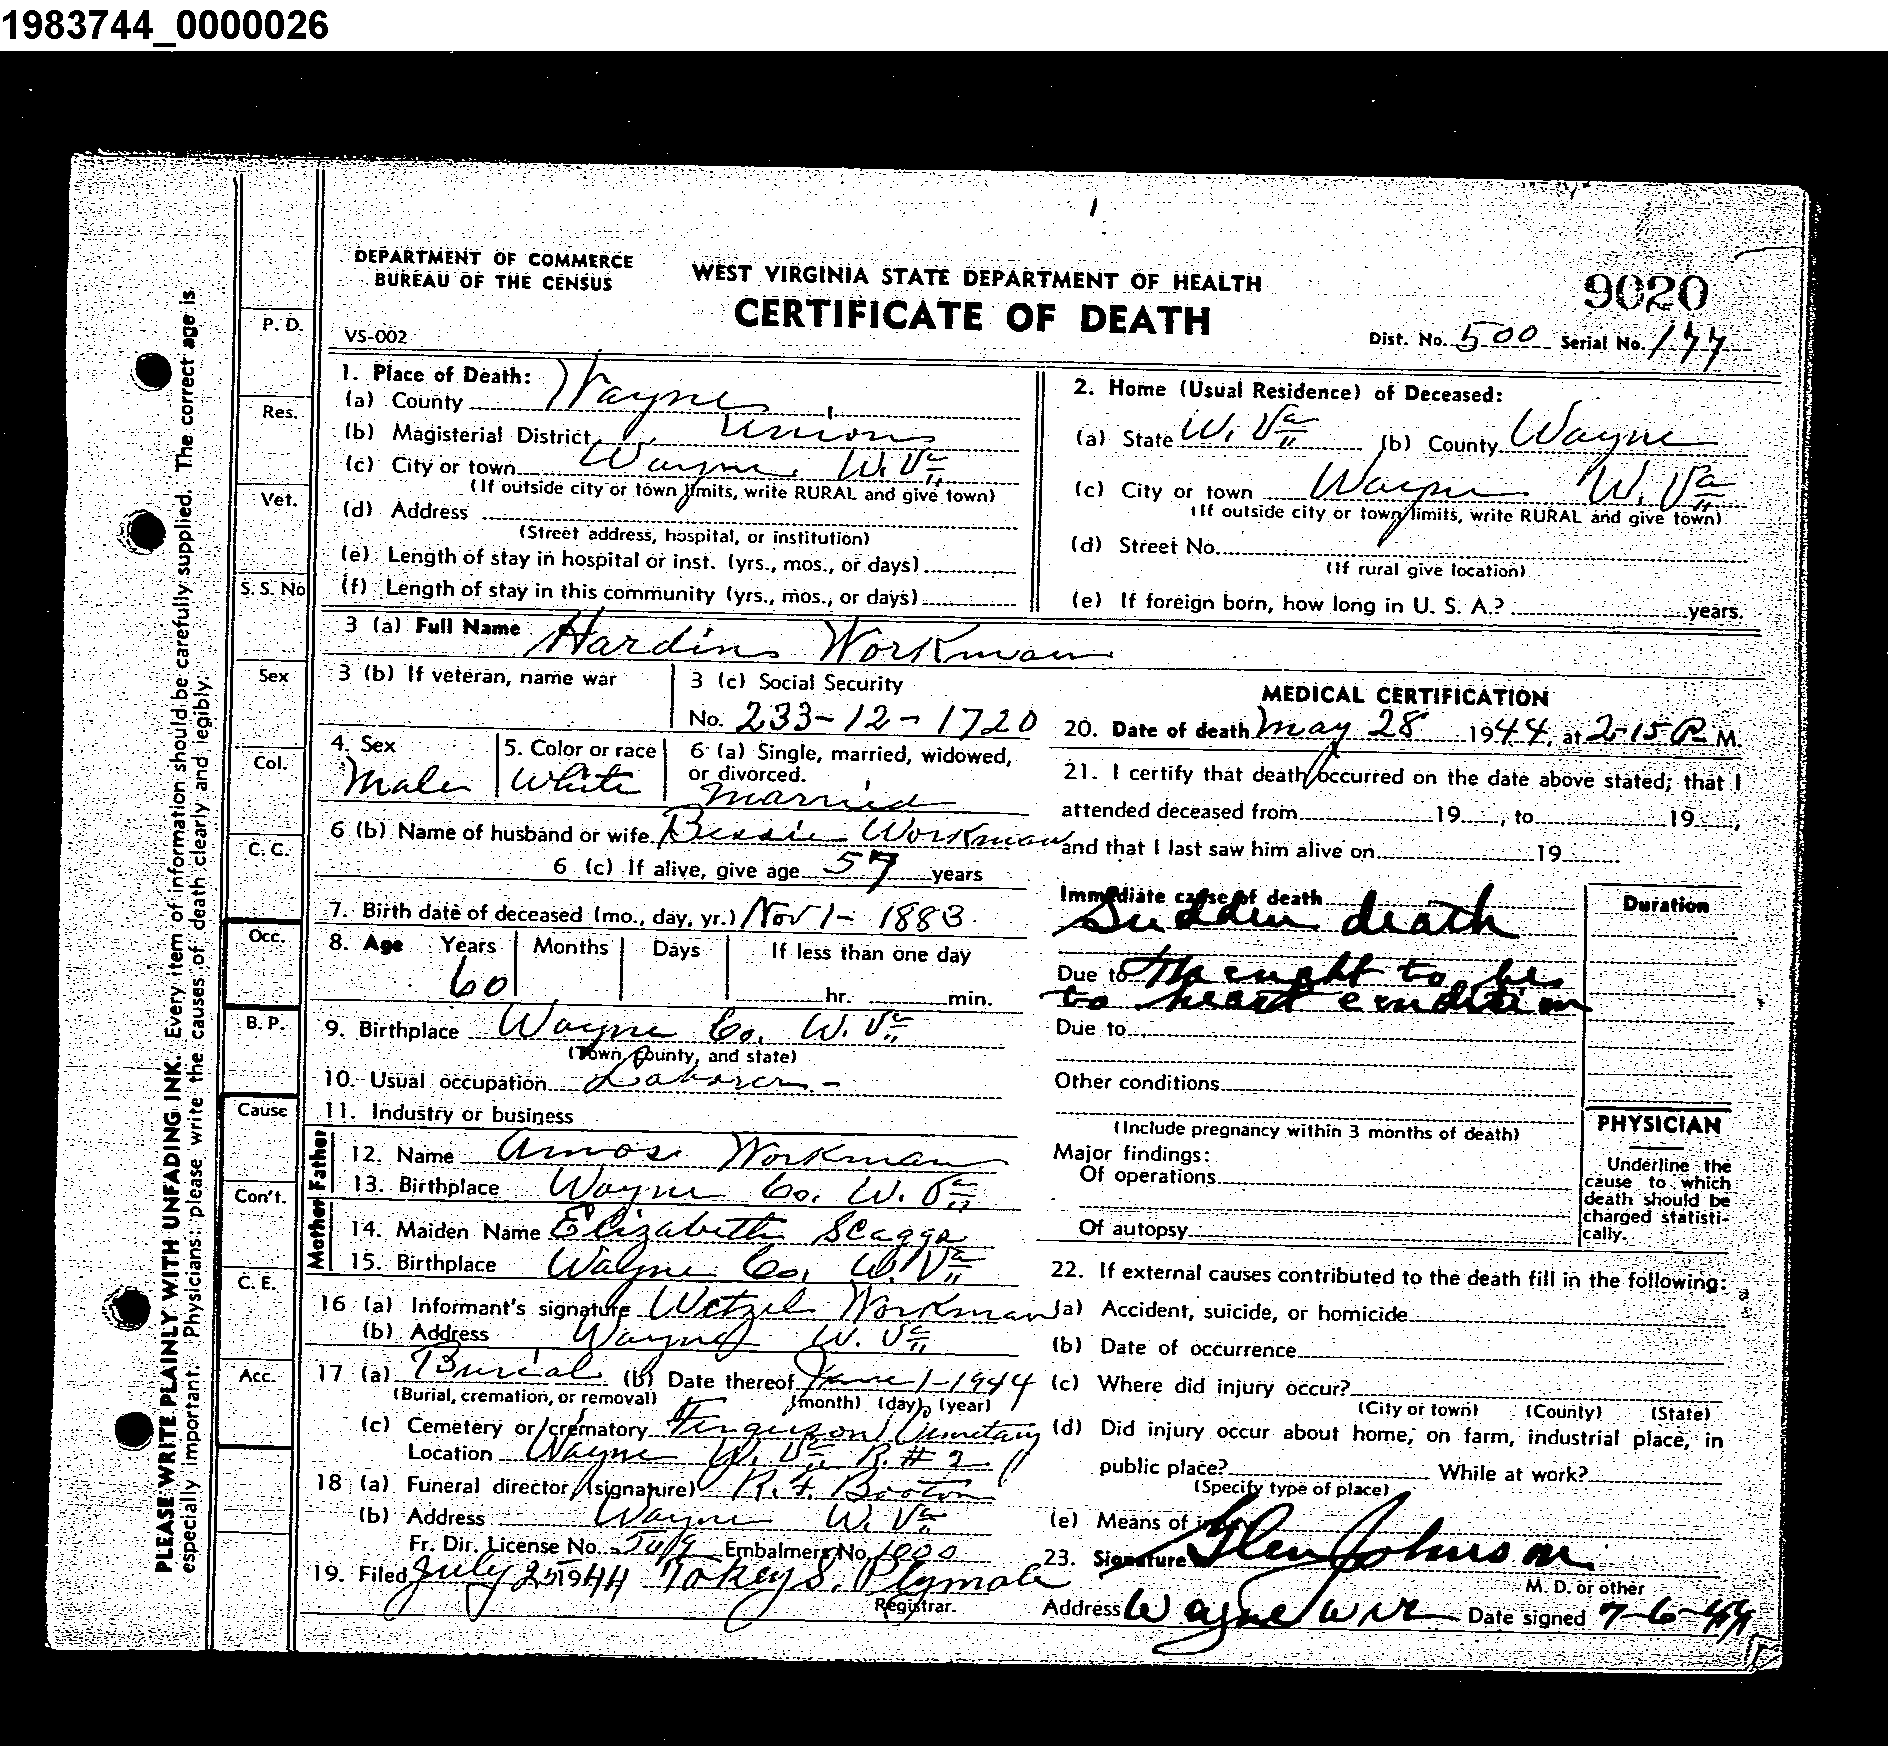 1983744_0000026
DEPARTMENT OF COMMERCE
BUREAU OF THE CENSUS
WEST VIRGINIA STATE DEPARTMENT OF HEALTH
CERTIFICATE OF DEATH
9020
VS-002
Dist. No. 500 Serial No. 177
PLEASE WRITE PLAINLY WITH UNFADING INK. Every item of information should be carefully supplied. The correct age is
especially important. Physicians: please write the causes of death clearly and legibly.
P. D.
Res.
Vet.
S. S. No
Sex
Col.
C. C.
Occ.
B. P.
Cause
Con't.
C. E.
Acc.
1. Place of Death:
(a) County Wayne
(b) Magisterial District Union
(c) City or town Wayne W. Va
(If outside city or town limits, write RURAL and give town)
(d) Address
(Street address, hospital, or institution)
(e) Length of stay in hospital or inst. (yrs., mos., or days)
(f) Length of stay in this community (yrs., mos., or days)
2. Home (Usual Residence) of Deceased:
(a) State W. Va (b) County Wayne
(c) City or town Wayne W. Va
(If outside city or town limits, write RURAL and give town)
(d) Street No.
(If rural give location)
(e) If foreign born, how long in U. S. A.? years.
3 (a) Full Name Hardin Workman
3 (b) If veteran, name war
3 (c) Social Security
No. 233-12-1720
4. Sex
Male
5. Color or race
White
6 (a) Single, married, widowed,
or divorced.
Married
6 (b) Name of husband or wife Bessie Workman
6 (c) If alive, give age 57 years
7. Birth date of deceased (mo., day, yr.) Nov 1- 1883
8. Age Years Months Days If less than one day
60 hr. min.
9. Birthplace Wayne Co. W. Va
(Town, County, and state)
10. Usual occupation Laborer -
11. Industry or business
Father
12. Name Amos Workman
13. Birthplace Wayne Co. W. Va
Mother
14. Maiden Name Elizabeth Scaggs
15. Birthplace Wayne Co. W. Va
16 (a) Informant's signature Wetzel Workman
(b) Address Wayne W. Va
17 (a) Burial (b) Date thereof June 1-1944
(Burial, cremation, or removal) (month) (day) (year)
(c) Cemetery or crematory Ferguson Cemetary
Location Wayne W. Va R. # 2
18 (a) Funeral director (signature) R. F. Booton
(b) Address Wayne W. Va
Fr. Dir. License No. Embalmers No. 1000
19. Filed July 25 1944 Tokey S. Plymale
Registrar.
MEDICAL CERTIFICATION
20. Date of death May 28 1944, at 2-15 P M.
21. I certify that death occurred on the date above stated; that I
attended deceased from 19 , to 19 ,
and that I last saw him alive on 19
Immediate cause of death
Sudden death
Duration
Due to Thought to be
to heart condition
Due to
Other conditions
(Include pregnancy within 3 months of death)
Major findings:
Of operations
Of autopsy
PHYSICIAN
Underline the
cause to which
death should be
charged statisti-
cally.
22. If external causes contributed to the death fill in the following:
(a) Accident, suicide, or homicide
(b) Date of occurrence
(c) Where did injury occur?
(City or town) (County) (State)
(d) Did injury occur about home, on farm, industrial place, in
public place? While at work?
(Specify type of place)
(e) Means of
23. Signature Glen Johnson
M. D. or other
Address Wayne W Va Date signed 7-6-44